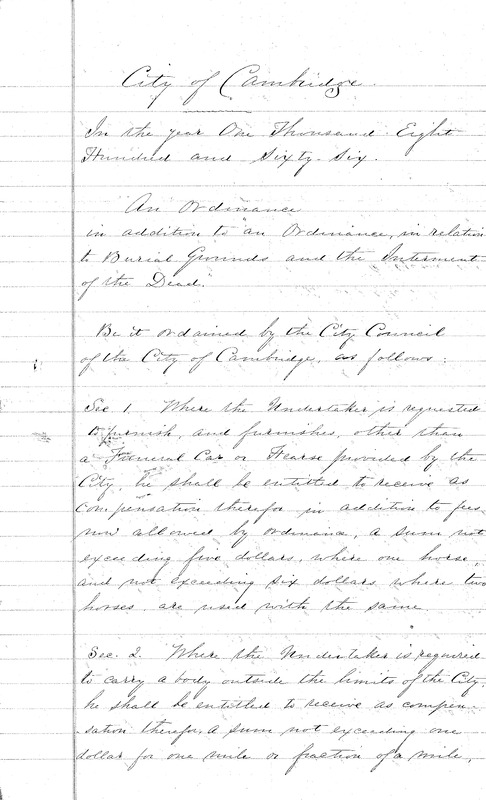 City of Cambridge.
In the year One Thousand Eight
Hundred and Sixty-Six.
An Ordinance
in addition to "an Ordinance, in relation
to Burial Grounds and the Interment
of the Dead."
Be it ordained by the City Council
of the City of Cambridge, as follows:
Sec. 1. Where the Undertaker is requested
to furnish, and furnishes, other than
a Funeral Car or Hearse provided by the
City, he shall be entitled to receive as
compensation therefor in addition to fees
now allowed by ordinance, a sum not
exceeding five dollars, where one horse,
and not exceeding six dollars where two
horses are used with the same.
Sec. 2. Where the Undertaker is required
to carry a body outside the limits of the City,
he shall be entitled to receive as compen-
sation therefor, a sum not exceeding one
dollar for one mile or fraction of a mile,